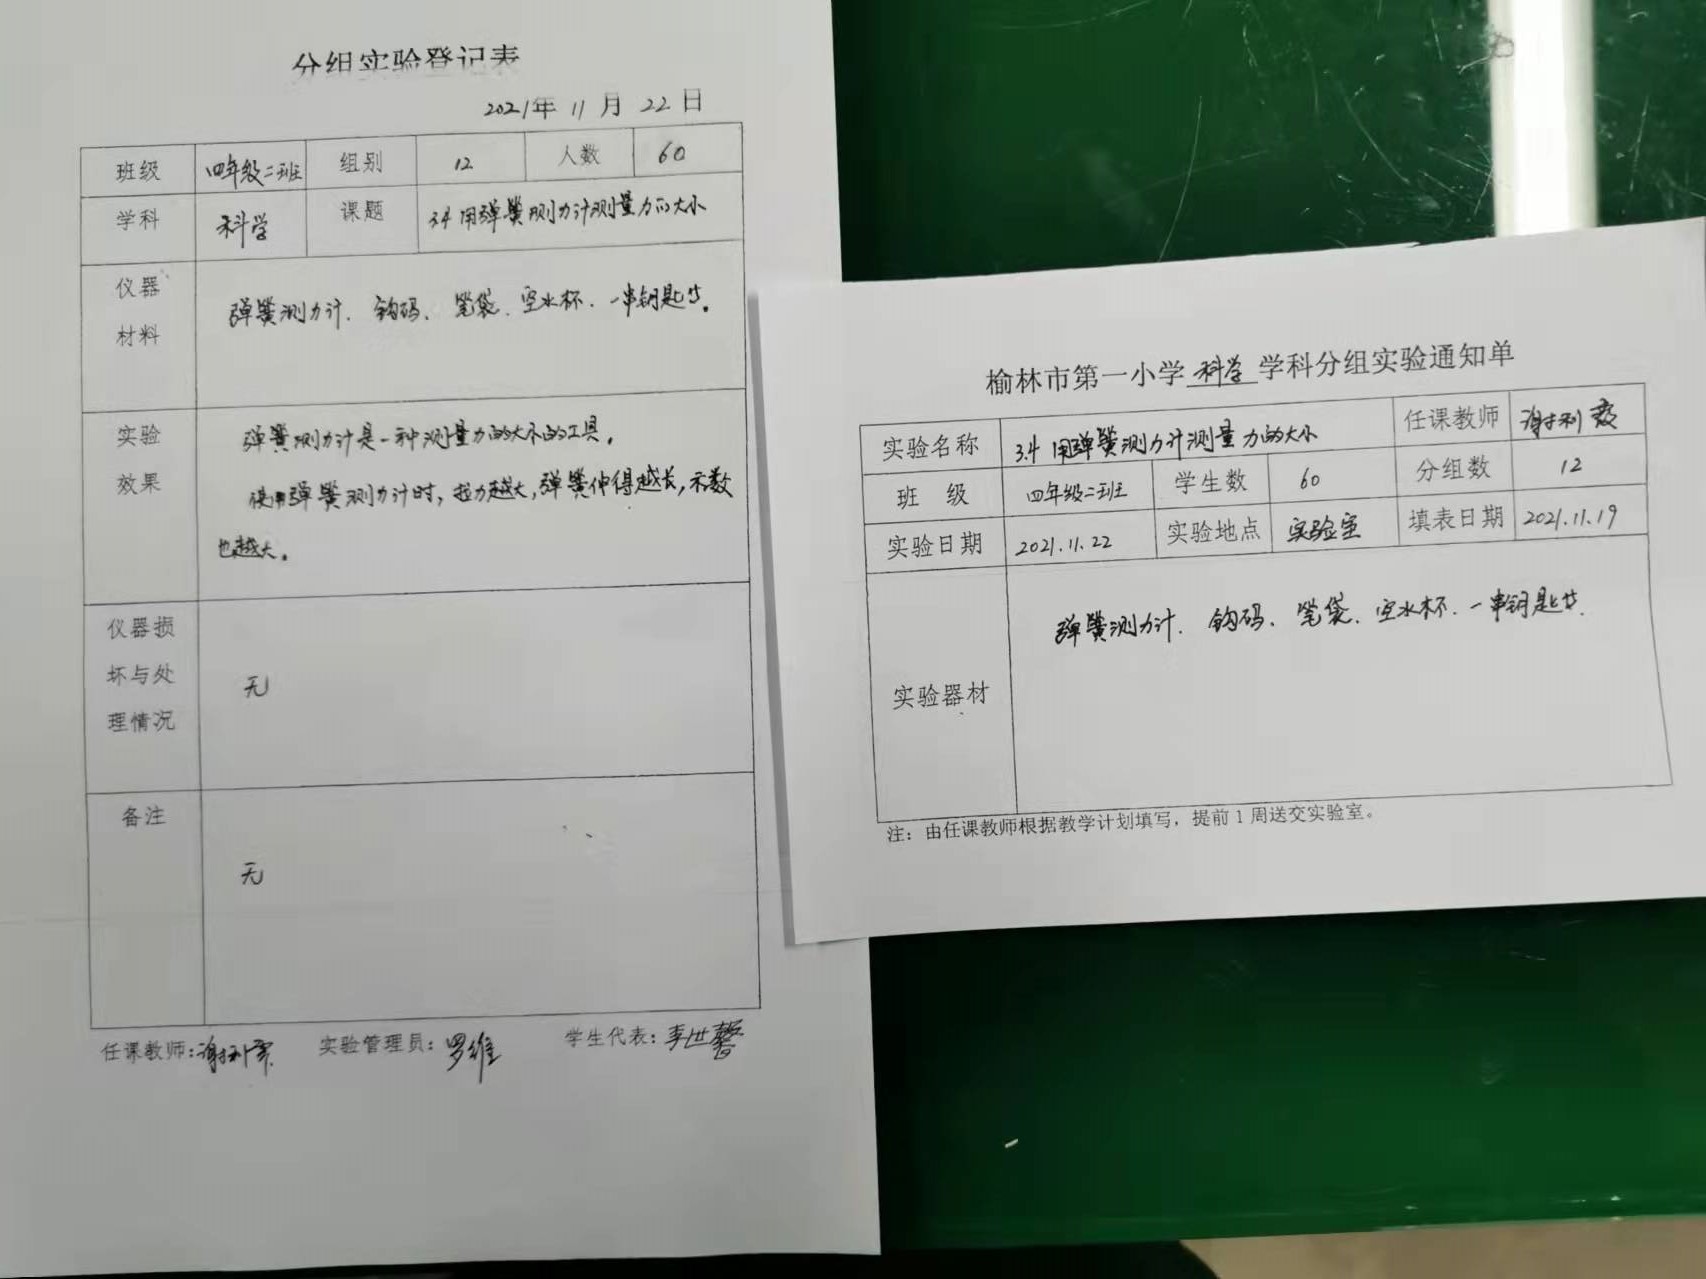 分组实验登记表
2021年 11 月 22 日
班级 四年级二班 组别 12 人数 60
学科 科学 课题 3.4 用弹簧测力计测量力的大小
仪器
材料
弹簧测力计、钩码、笔袋、空水杯、一串钥匙等。
实验
效果
弹簧测力计是一种测量力的大小的工具。
使用弹簧测力计时，拉力越大，弹簧伸得越长，示数
也越大。
仪器损
坏与处
理情况
无
备注
无
任课教师: 实验管理员: 罗维 学生代表: 李世馨
榆林市第一小学 科学 学科分组实验通知单
实验名称 3.4 用弹簧测力计测量力的大小 任课教师
班 级 四年级二班 学生数 60 分组数 12
实验日期 2021.11.22 实验地点 实验室 填表日期 2021.11.19
实验器材
弹簧测力计、钩码、笔袋、空水杯、一串钥匙等
注：由任课教师根据教学计划填写，提前1周送交实验室。